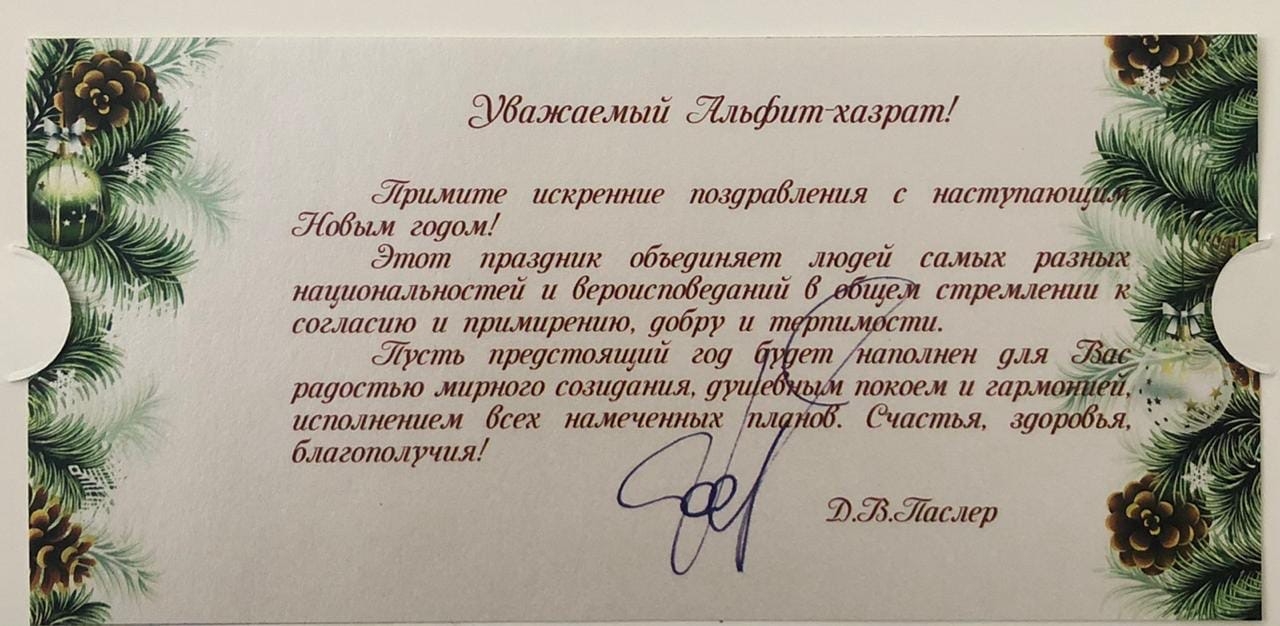 Уважаемый Альфит-хазрат!
Примите искренние поздравления с наступающим
Новым годом!
Этот праздник объединяет людей самых разных
национальностей и вероисповеданий в общем стремлении к
согласию и примирению, добру и терпимости.
Пусть предстоящий год будет наполнен для Вас
радостью мирного созидания, душевным покоем и гармонией,
исполнением всех намеченных планов. Счастья, здоровья,
благополучия!
Д.В.Паслер